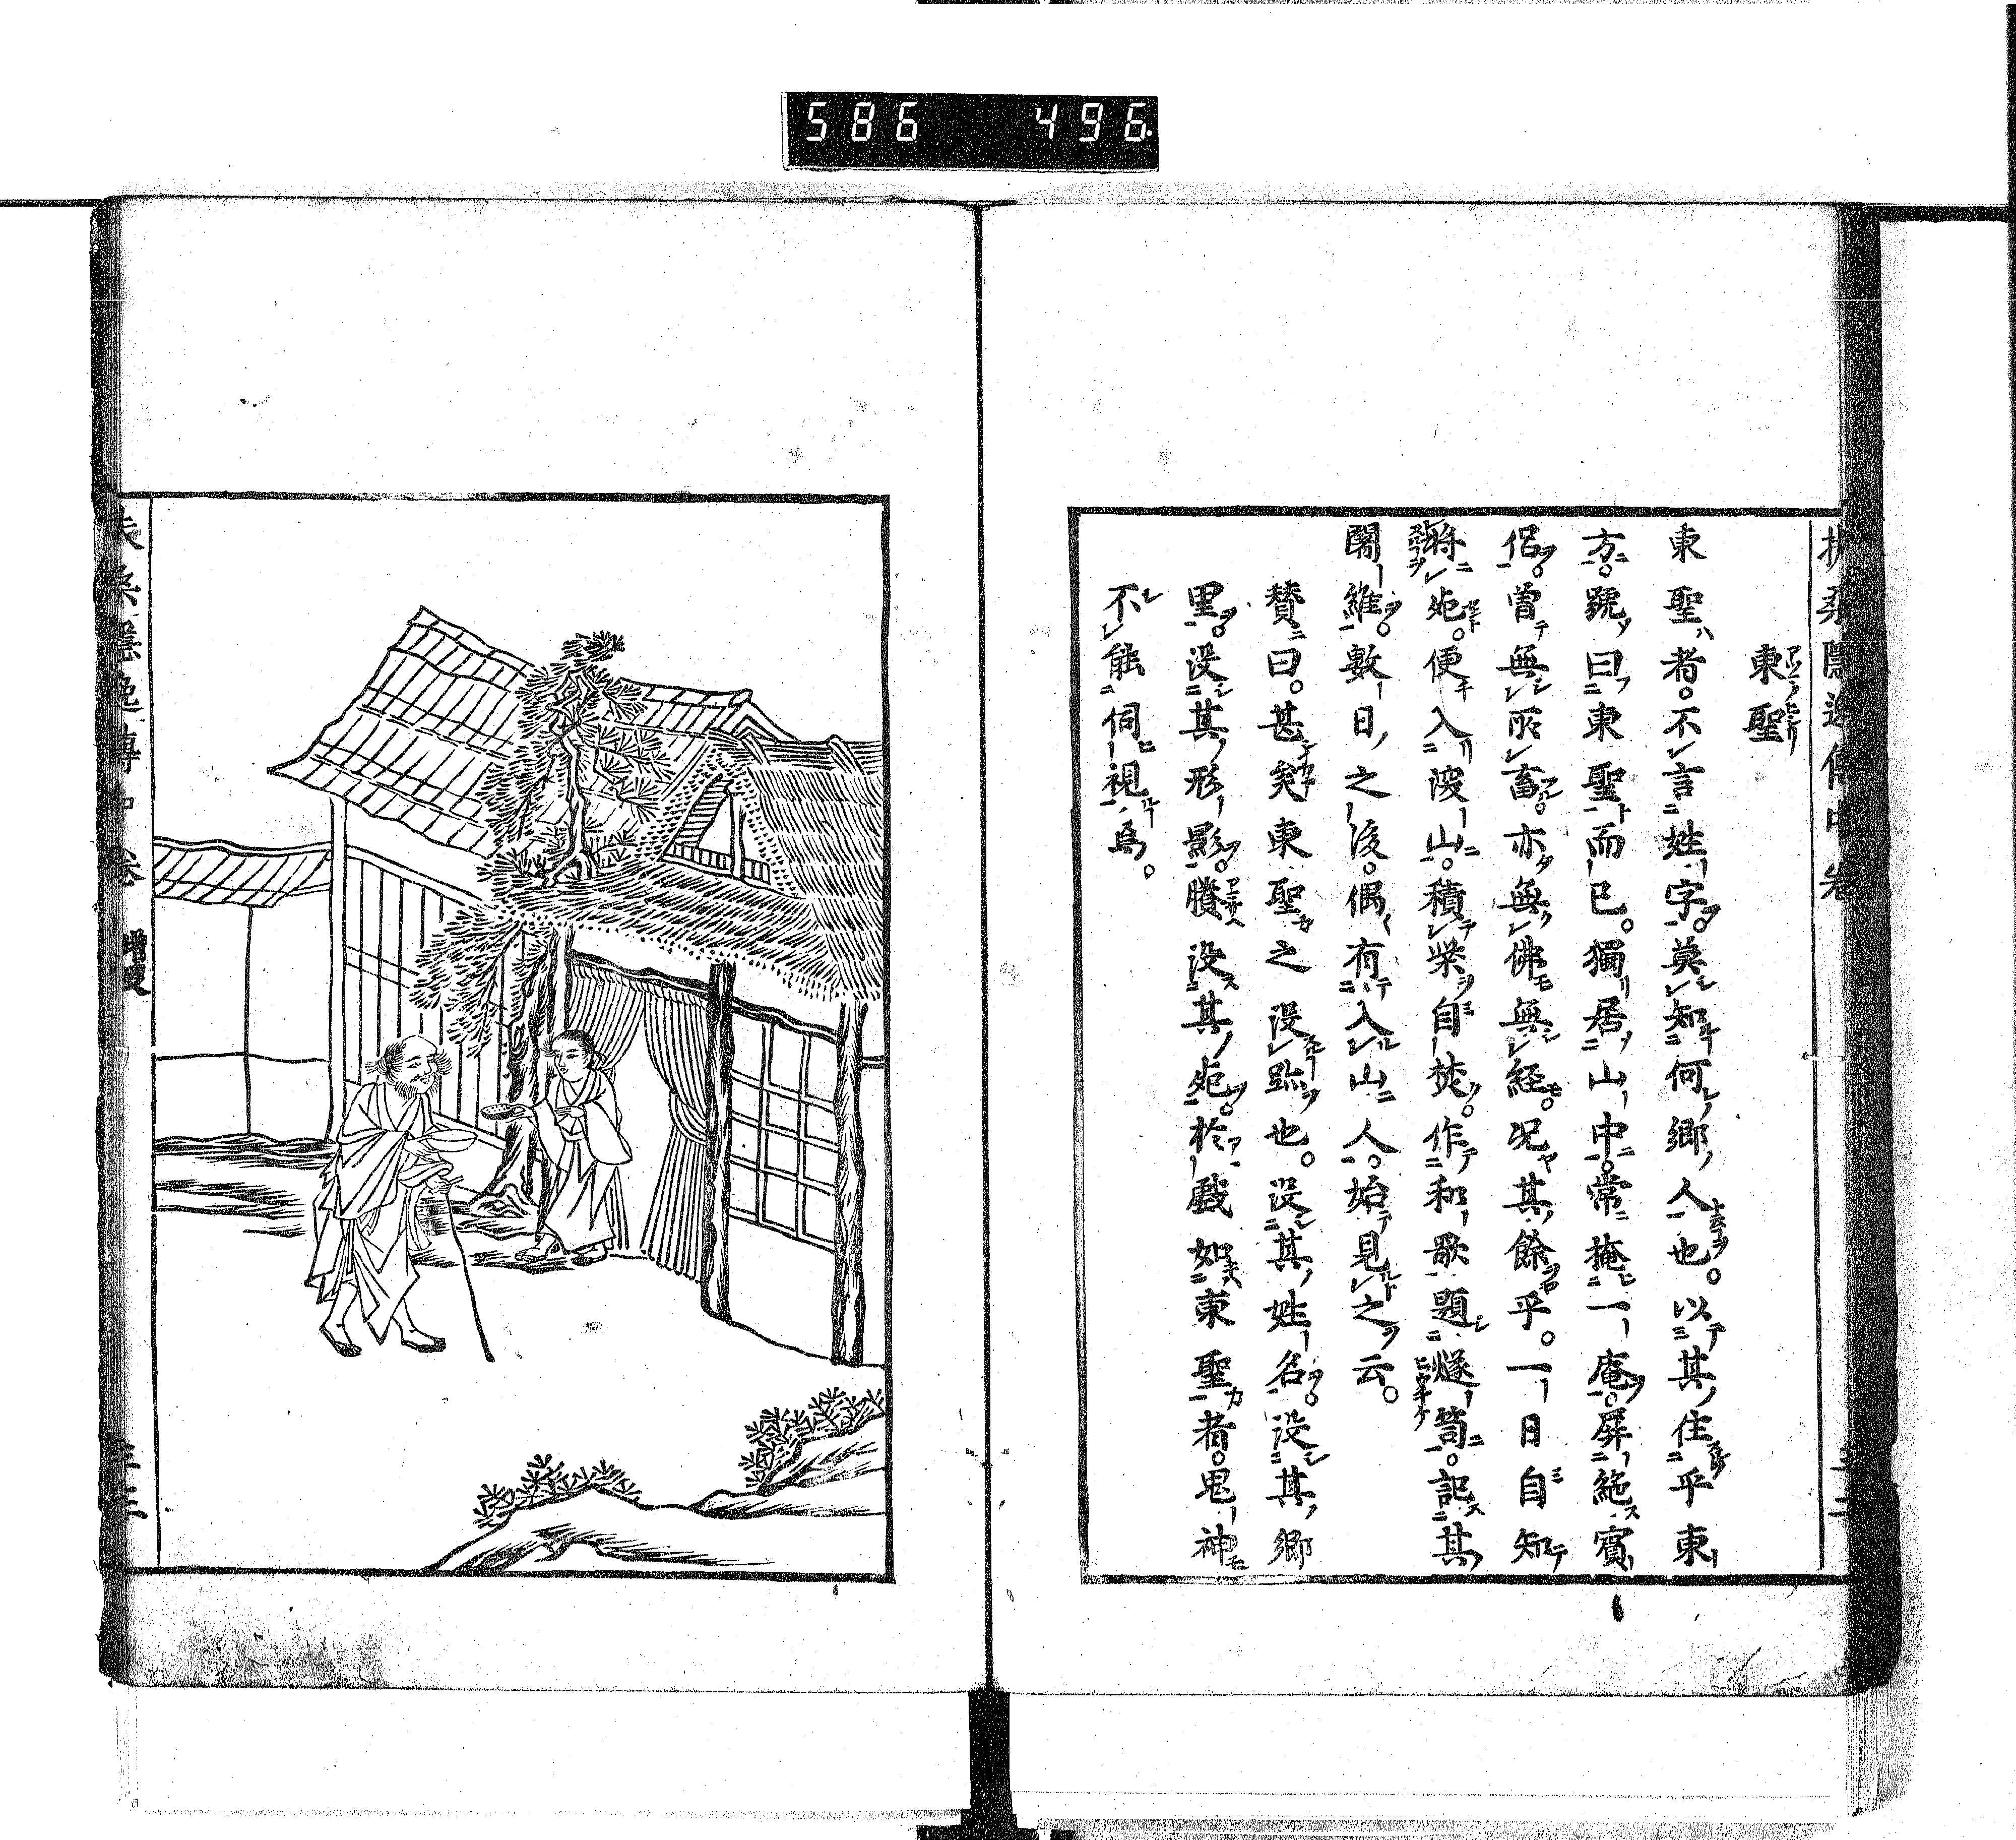 586 496
扶桑隱逸傳中卷
東聖
東聖者。不言姓字。莫知何鄉人也。以其住乎東
方。號曰東聖而已。獨居山中。常掩一庵。屏絶賓
侶。曾無所畜。亦無佛無經。况其餘乎。一日自知
將死。便入深山。積柴自焚。作和歌題燧笥。記其
闍維。數日之後。偶有入山人。始見之云。
賛曰。甚矣東聖之沒跡也。沒其姓名。沒其鄉
里。沒其形影。騰沒其死。於戲如東聖者。鬼神
不能伺視焉。
扶桑隱逸傳中卷 增叟